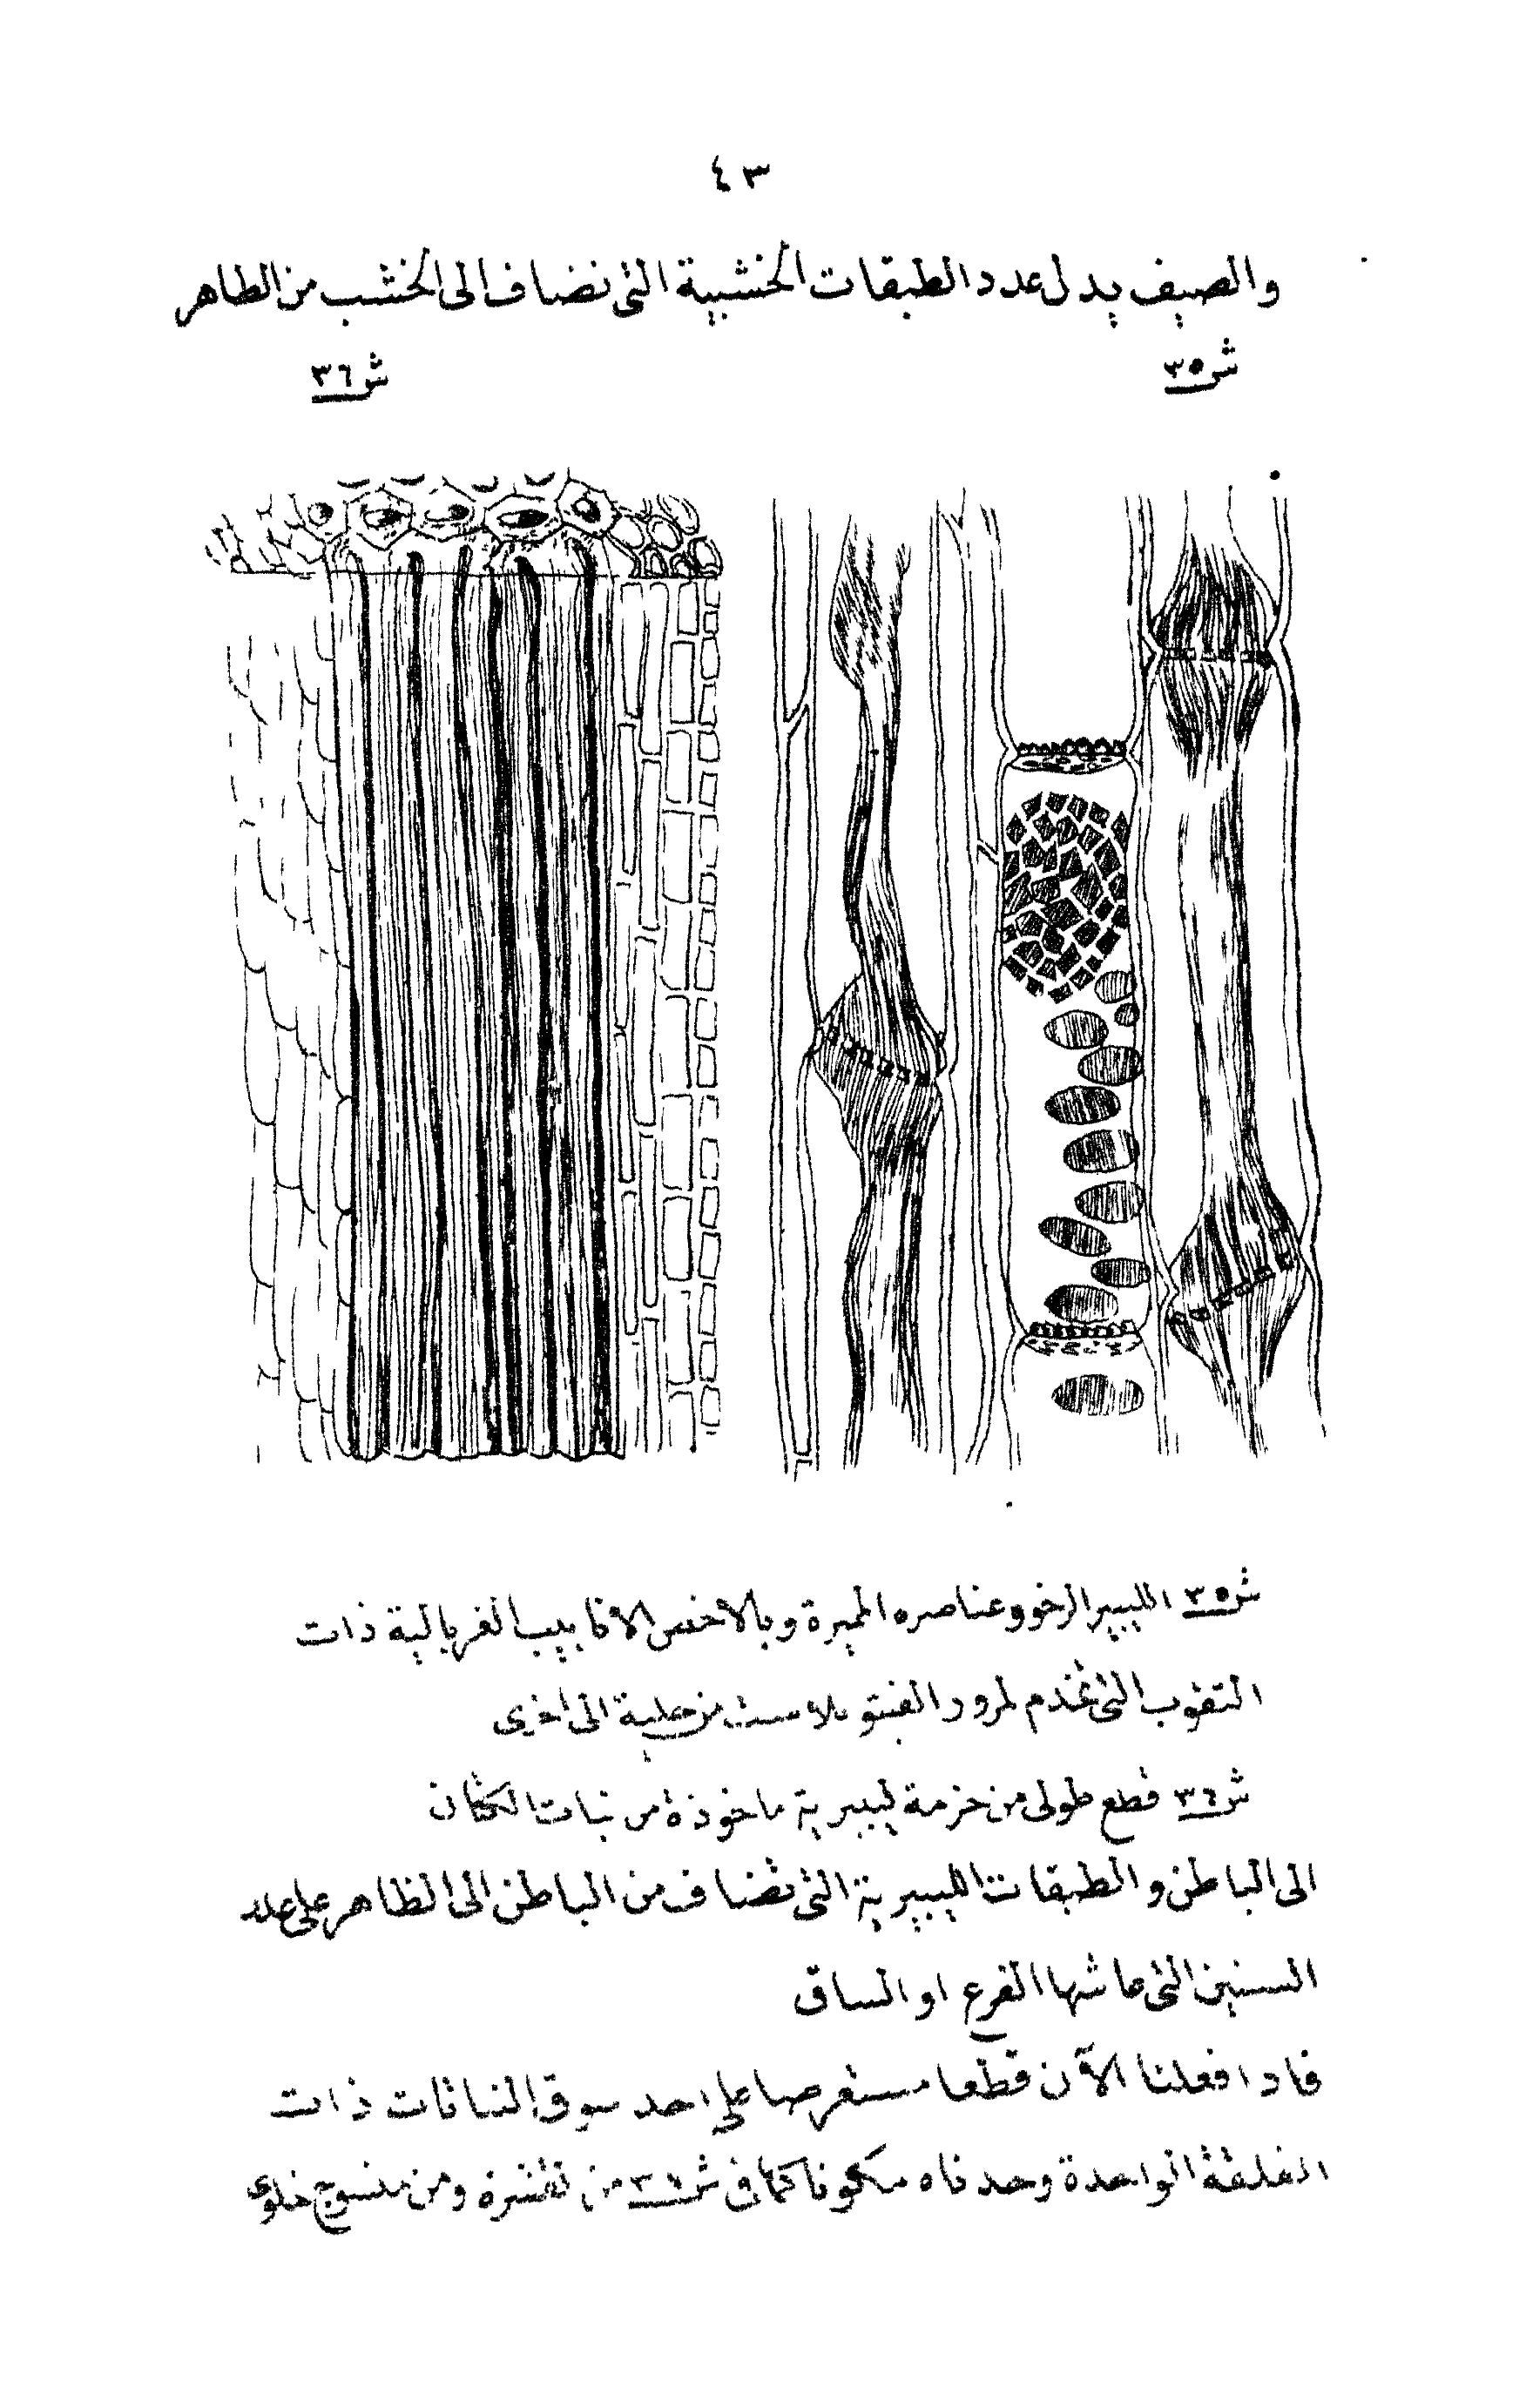 ٤٣
والصيف يدل عدد الطبقات الخشبية التى نضاف الى الخشب من الظاهر
ش٣٥
ش٣٦
ش٣٥ الليبير الرخو وعناصره المميزة وبالاخص الانابيب الغربالية ذات
الثقوب التى تخدم لمرور الفيتوبلاست من خلية الى أخرى
ش٣٦ قطع طولى من حزمة ليبيرية ماخوذة من نبات الكتان
الى الباطن والطبقات الليبيرية التى تضاف من الباطن الى الظاهر على عدد
السنين التى عاشها الفرع او الساق
فاذا فعلنا الآن قطعا مستعرضا على احد سوق النباتات ذات
الفلقة الواحدة وجدناه مكونا كما فى ش٣٦ من قشرة ومن منسوج خلوى